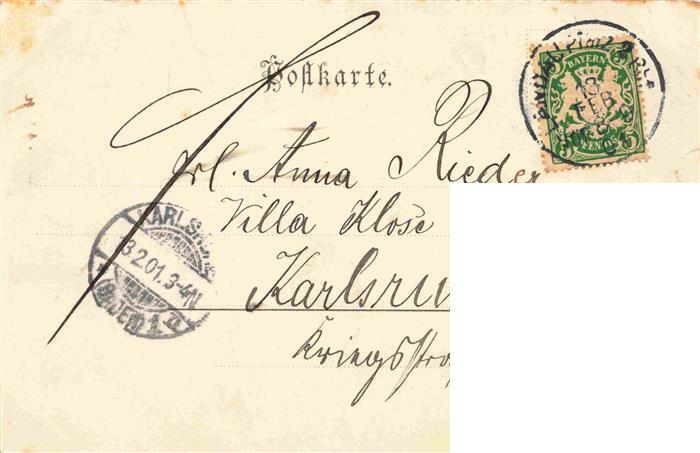 Postkarte.
BAYERN
13
FEB
01
Frl. Anna Rieder
Villa Klose
Karlsru
Kriegsstra
KARLSRUHE
3.2.01.3-4N
(BADEN) 1